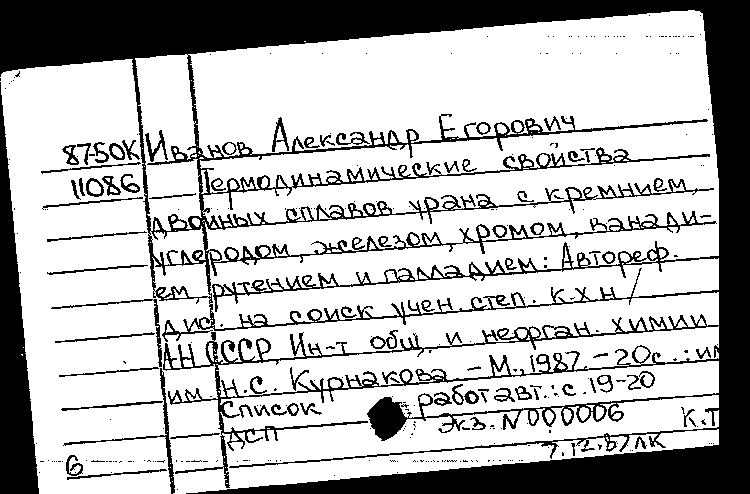 8750К Иванов, Александр Егорович
11086 Термодинамические свойства
двойных сплавов урана с кремнием,
углеродом, железом, хромом, ванади-
ем, рутением и палладием: Автореф.
дис. на соиск учен. степ. к.х.н /
АН СССР, Ин-т общ. и неорган. химии
им Н.С. Курнакова - М., 1987. - 20с.: ил
Список работ авт.: с. 19-20
ДСП Экз. N 000006
К.Т
6 7.12.87 ЛК